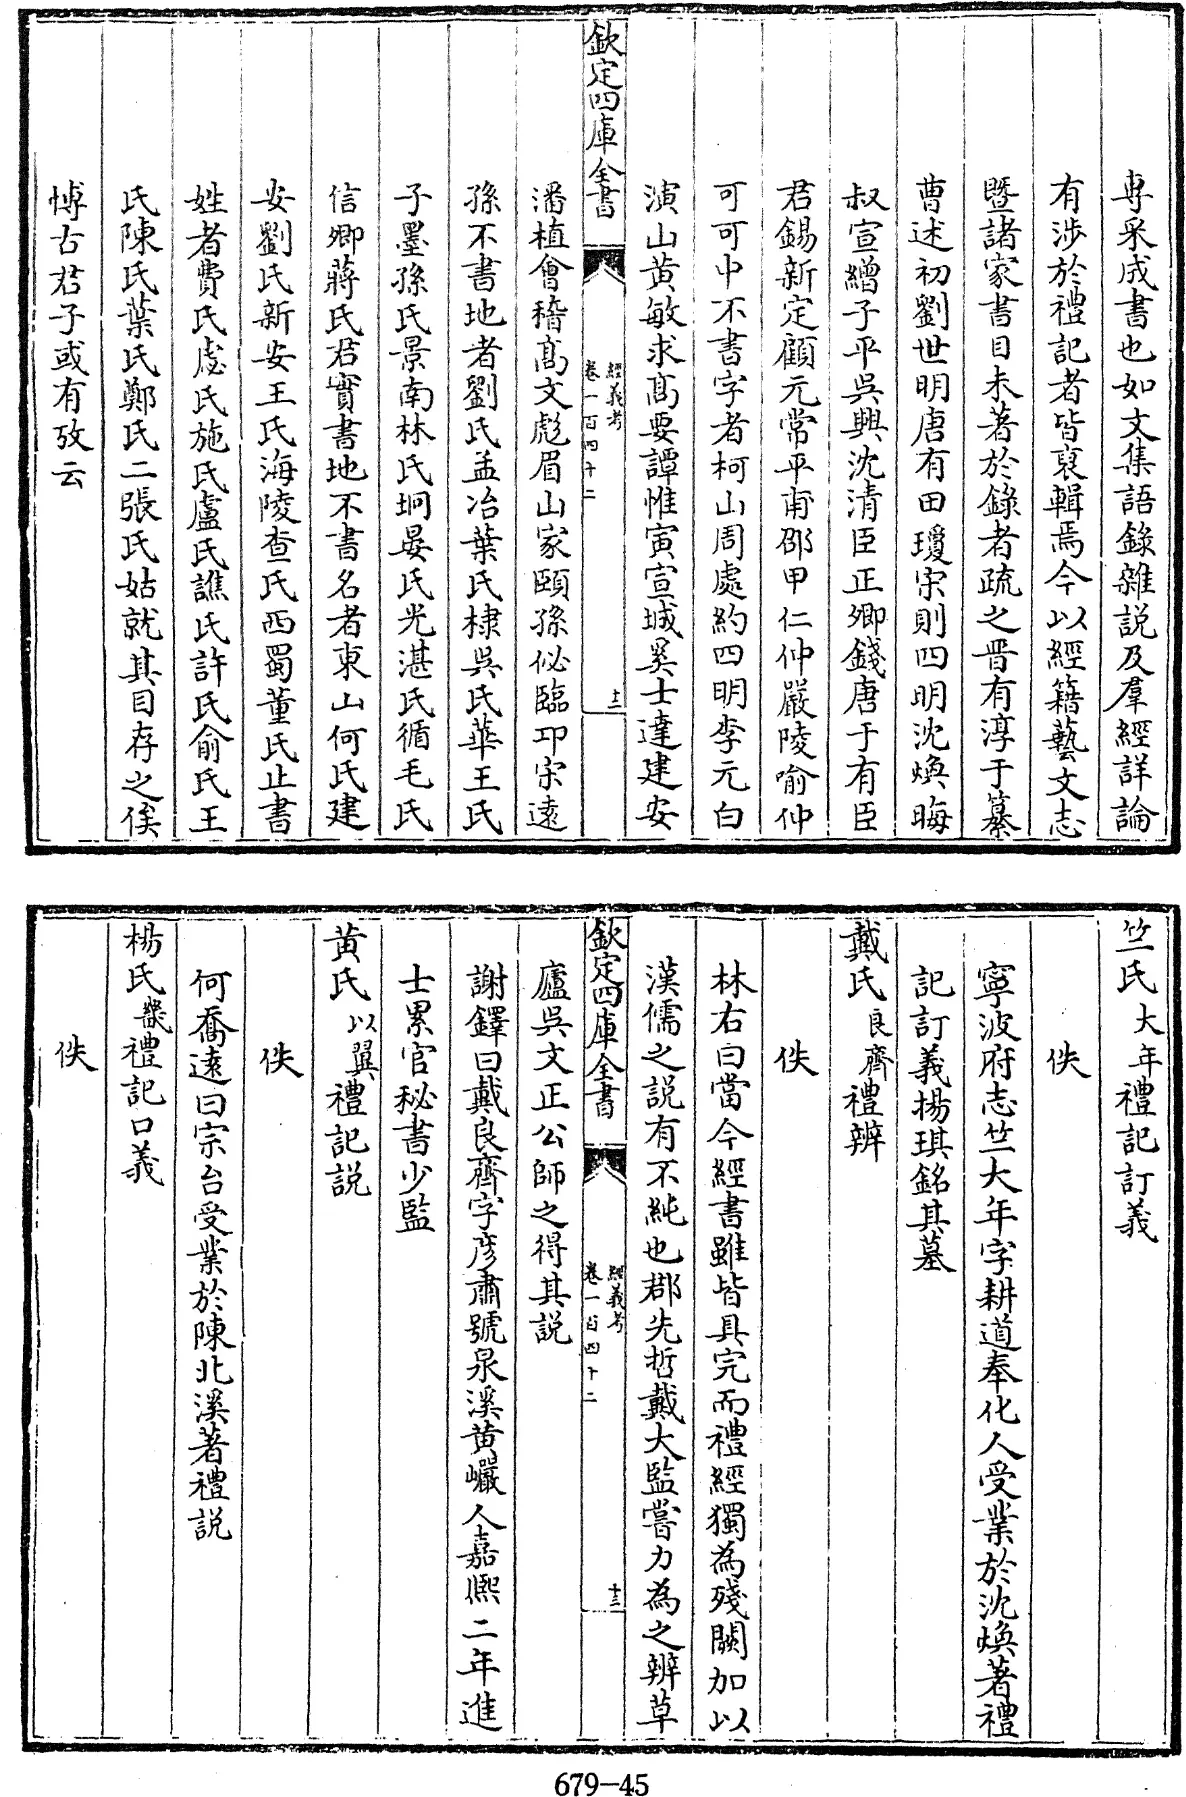 專采成書也如文集語錄雜説及羣經詳論
有涉於禮記者皆裒輯焉今以經籍藝文志
暨諸家書目未著於錄者疏之晋有淳于纂
曹述初劉世明唐有田瓊宋則四明沈煥晦
叔宣繒子平吳興沈清臣正卿錢唐于有臣
君錫新定顧元常平甫邵甲仁仲嚴陵喻仲
可可中不書字者柯山周處約四明李元白
演山黄敏求髙要譚惟寅宣城奚士達建安
欽定四庫全書
經義考
卷一百四十二
十二
潘植會稽髙文彪眉山家頤孫佖臨卭宋遠
孫不書地者劉氏孟冶葉氏棣吳氏華王氏
子墨孫氏景南林氏坰晏氏光湛氏循毛氏
信卿蔣氏君實書地不書名者東山何氏建
安劉氏新安王氏海陵查氏西蜀董氏止書
姓者費氏庞氏施氏盧氏譙氏許氏俞氏王
氏陳氏葉氏鄭氏二張氏姑就其目存之俟
博古君子或有攷云
竺氏大年禮記訂義
佚
寧波府志竺大年字耕道奉化人受業於沈煥著禮
記訂義揚琪銘其墓
戴氏良齊禮辨
佚
林右曰當今經書雖皆具完而禮經獨為殘闕加以
漢儒之説有不純也郡先哲戴大監嘗力為之辨草
欽定四庫全書
經義考
卷一百四十二
十三
廬吳文正公師之得其説
謝鐸曰戴良齊字彦肅號泉溪黄巖人嘉熙二年進
士累官秘書少監
黄氏以翼禮記説
佚
何喬遠曰宗台受業於陳北溪著禮説
楊氏㡬禮記口義
佚
679-45